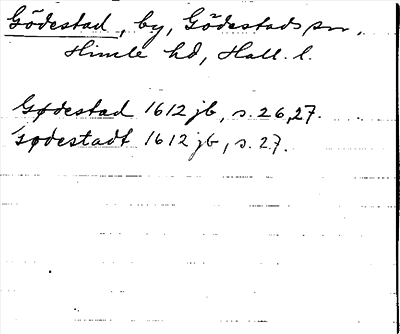 Gödestad, by, Gödestads sn,
Himle hd, Hall. l.
Gødestad 1612 jb, s. 26, 27.
Gødestadt 1612 jb, s. 27.